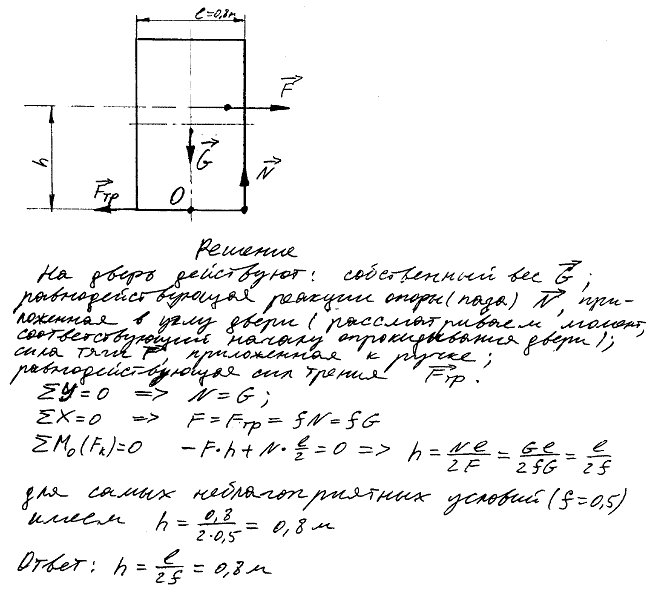 l=0,8м
F
h
G
N
Fтр
O
Решение
На дверь действуют: собственный вес G;
равнодействующая реакции опоры (пада) N, при-
ложенная в углу двери (рассматриваем момент,
соответствующий началу опрокидывания двери);
сила тяги F, приложенная к ручке;
равнодействующая сил трения Fтр.
ΣY=0 => N=G;
ΣX=0 => F=Fтр=fN=fG
ΣMo(Fk)=0 -F·h+N·l/2=0 => h=Nl/2F=Gl/2fG=l/2f
для самых неблагоприятных условий (f=0,5)
имеем h=0,8/2·0,5=0,8м
Ответ: h=l/2f=0,8м